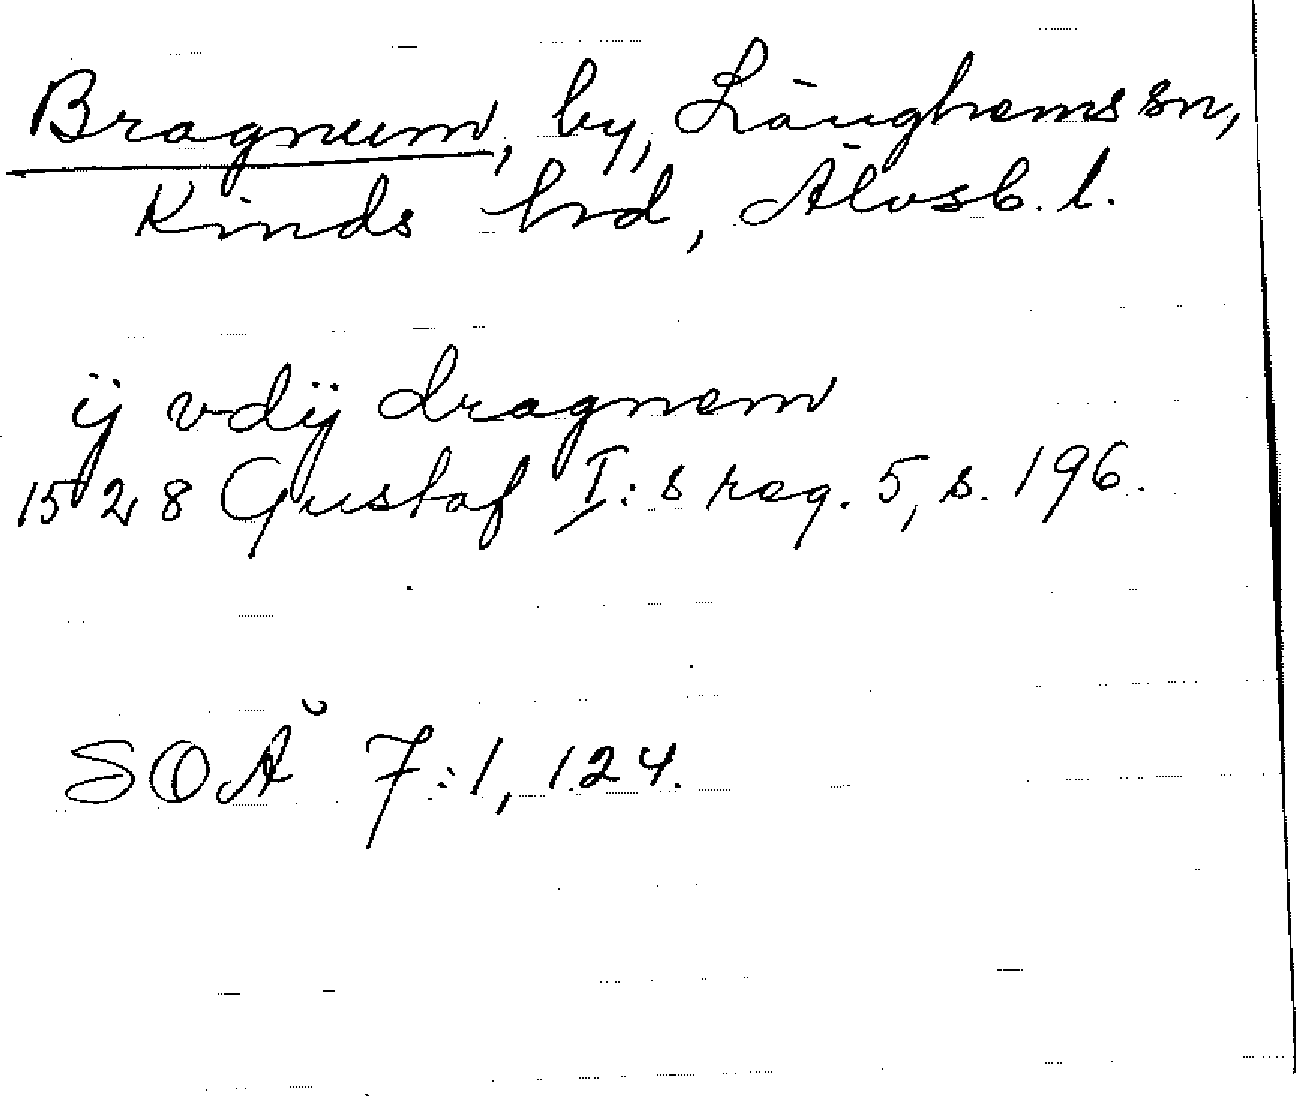 Bragnum, by, Länghems sn,
Kinds hrd, Älvsb. l.
ij vdij dragnem
1528 Gustaf I:s reg. 5, s. 196.
SOÄ 7:1, 124.